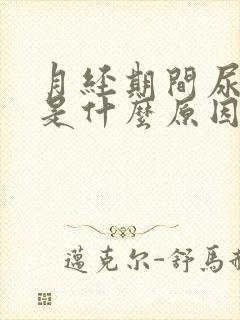 月経期間尿
是什麼原因
邁克尔-舒馬赫